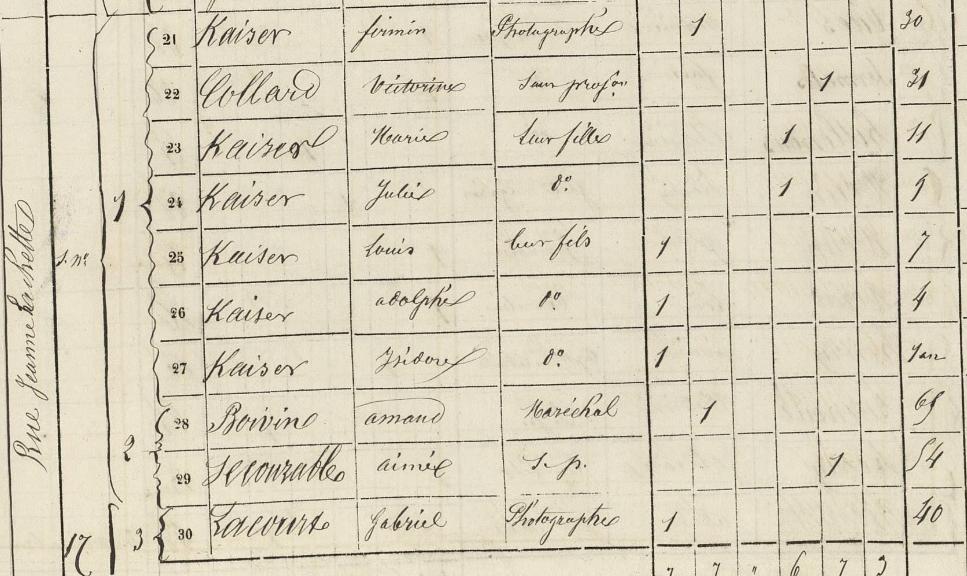 Rue Jeanne Hachette
s. nº
1
21 Kaiser firmin Photographe 1 30
22 Collard Victorine Sans profon 1 31
23 Kaiser Marie leur fille 1 11
24 Kaiser Julie dº 1 9
25 Kaiser Louis leur fils 1 7
26 Kaiser adolphe dº 1 4
27 Kaiser Isidore dº 1 1 an
2
28 Boivin amand Maréchal 1
29 aimée s. p. 1 54
17 3
30 Lacourte Gabriel Photographe 1 40
7 7 " 6 7 3